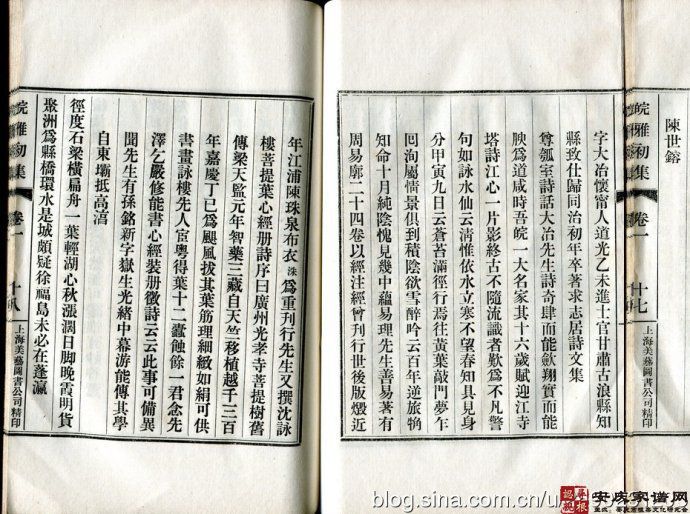 陳世鎔
皖雅初集 卷一 十七 上海美藝圖書公司精印
字大冶懷甯人道光乙未進士官甘肅古浪縣知
縣致仕歸同治初年卒著求志居詩文集
尊瓠室詩話大冶先生詩奇肆而能歛翔實而能
腴爲道咸時吾皖一大名家其十六歲賦迎江寺
塔詩江心一片影終古不隨流識者歎爲不凡警
句如詠水仙云清惟依水立寒不望春知具見身
分甲寅九日云蒼苔滿徑行焉往黃葉敲門夢乍
回洵屬情景俱到積陰欲雪醉吟云百年逆旅
知命十月純陰愧見幾中蘊易理先生善易著有
周易廓二十四卷以經注經曾刊行世後版燬近
年江浦陳珠泉布衣洙爲重刊行先生又撰沈詠
樓菩提葉心經册詩序曰廣州光孝寺菩提樹舊
傳梁天監元年智藥三藏自天竺移植越千三百
年嘉慶丁巳爲颶風拔其葉筋理細緻如絹可供
書畫詠樓先人宦粵得葉十二蠹蝕餘一君念先
澤乞嚴修能書心經裝册徵詩云云此事可備異
聞先生有孫銘新字獄生光緒中幕游能傳其學
自東壩抵高湻
徑度石梁橫扁舟一葉輕湖心秋漲濶日脚晚霞明貨
聚洲爲縣橋環水是城頗疑徐福島未必在蓬瀛
皖雅初集 卷一 十八 上海美藝圖書公司精印
blog.sina.com.cn/u/
安庆家谱网